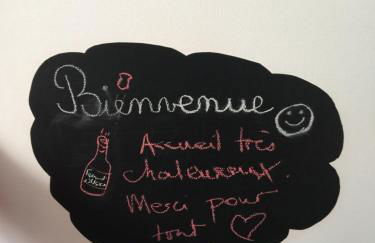 Bienvenue
Accueil très
chaleureux.
Merci pour
tout